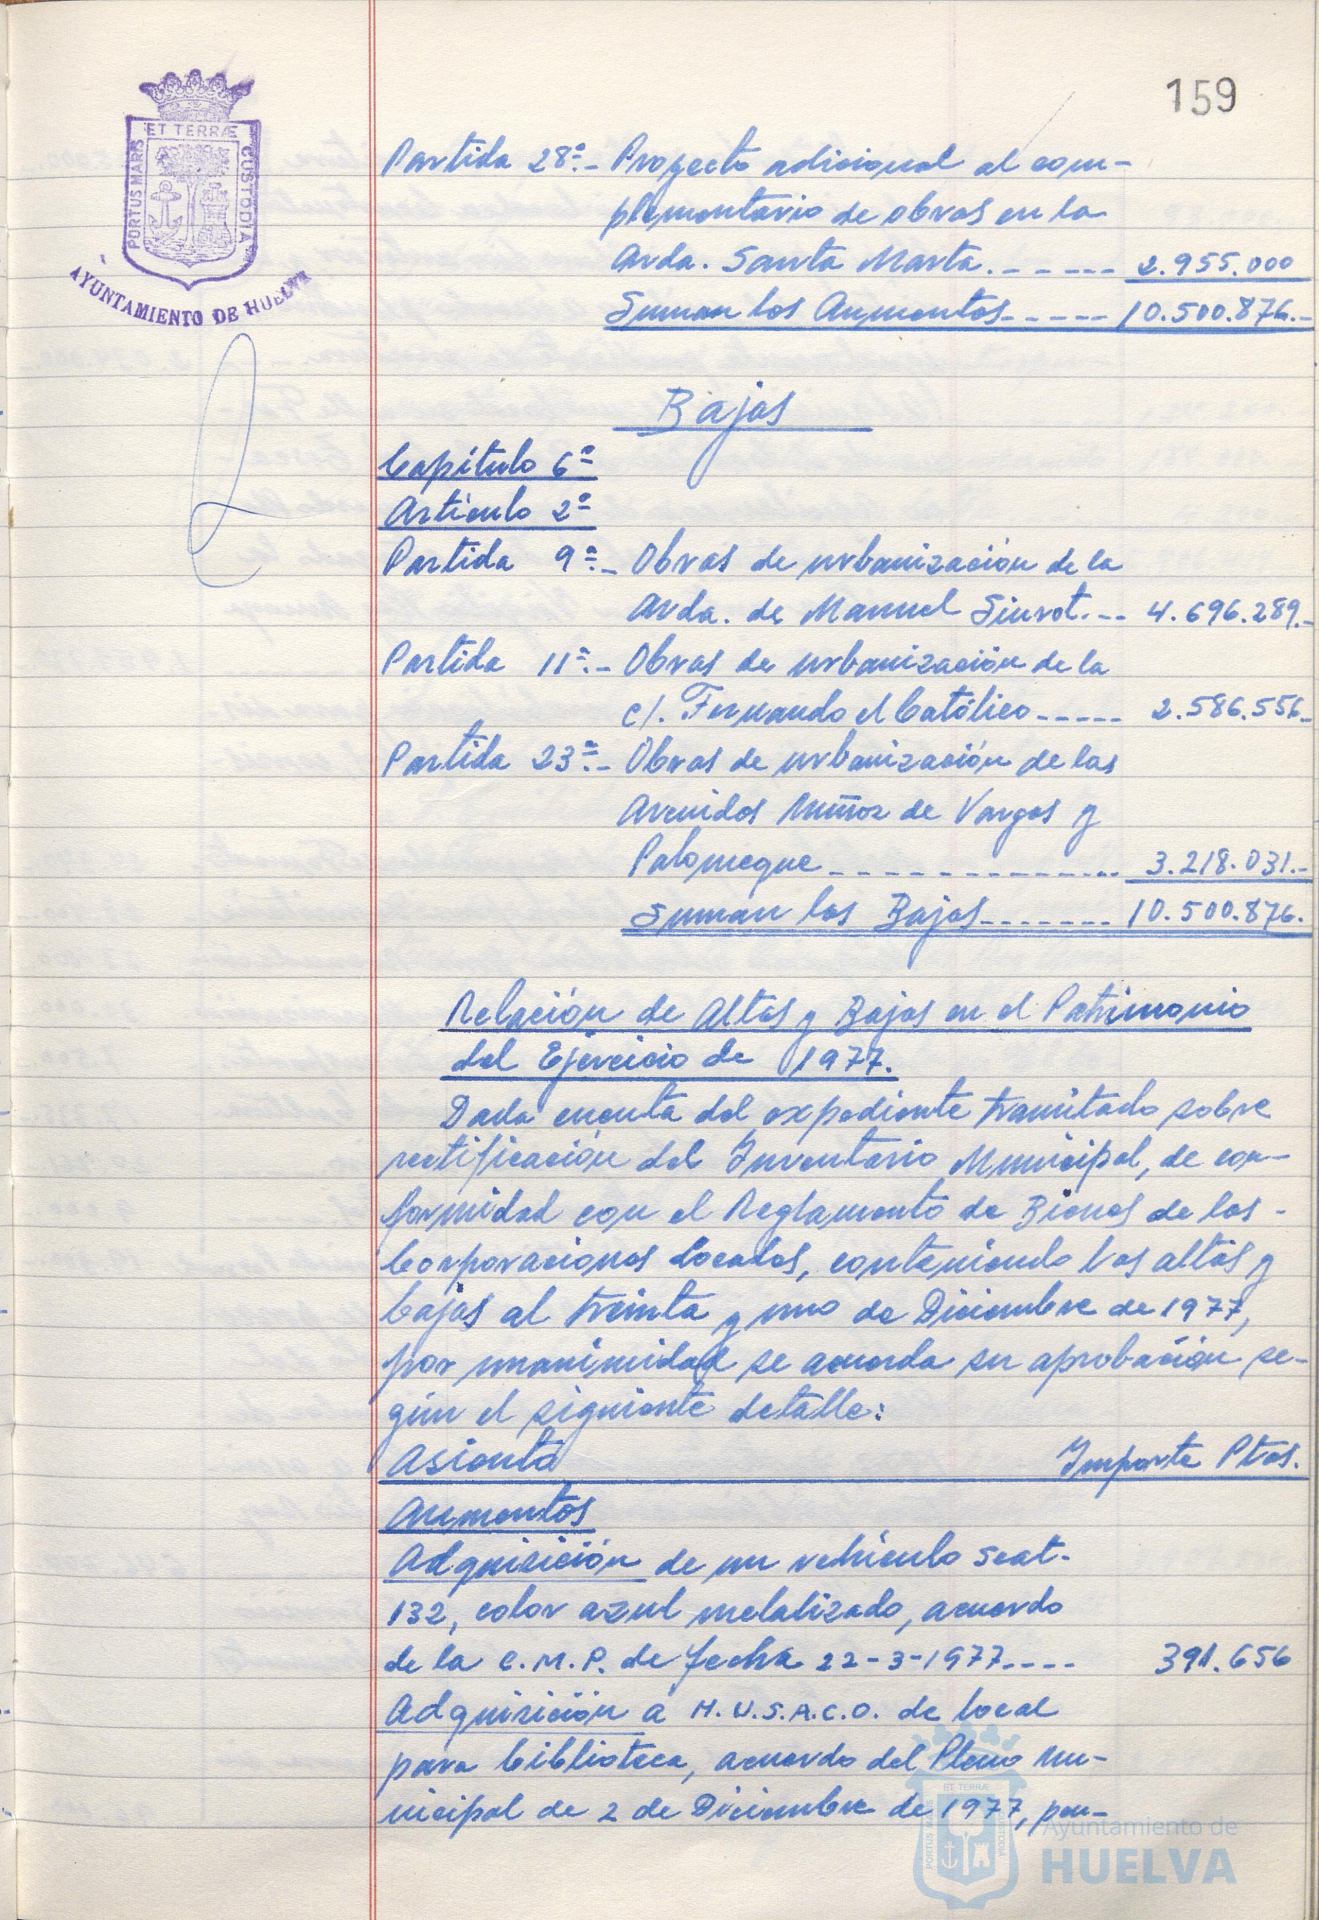 159
ET TERRÆ
PORTUS MARIS
CUSTODIA
AYUNTAMIENTO DE HUELVA
Partida 28ª.- Proyecto adicional al com-
plementario de obras en la
Avda. Santa Marta.------ 2.955.000
Suman los Aumentos----- 10.500.876.-
Bajas
Capítulo 6º
Artículo 2º
Partida 9ª.- Obras de urbanización de la
Avda. de Manuel Siurot.-- 4.696.289.-
Partida 11ª.- Obras de urbanización de la
c/. Fernando el Católico----- 2.586.556.-
Partida 23ª.- Obras de urbanización de las
Avenidas Muñoz de Vargas y
Palomeque-------------- 3.218.031.-
Suman las Bajas------- 10.500.876.
Relación de Altas y Bajas en el Patrimonio
del Ejercicio de 1977.
Dada cuenta del expediente tramitado sobre
rectificación del Inventario Municipal, de con-
formidad con el Reglamento de Bienes de las -
Corporaciones Locales, conteniendo las altas y
bajas al treinta y uno de Diciembre de 1977,
por unanimidad se acuerda su aprobación se-
gún el siguiente detalle:
Asiento Importe Ptas.
Aumentos
Adquisición de un vehículo Seat-
132, color azul metalizado, acuerdo
de la C.M.P. de fecha 22-3-1977---- 391.656
Adquisición a H.U.S.A.C.O. de local
para biblioteca, acuerdo del Pleno Mu-
nicipal de 2 de Diciembre de 1977, pen-
ET TERRÆ
PORTUS MARIS
CUSTODIA
Ayuntamiento de
HUELVA